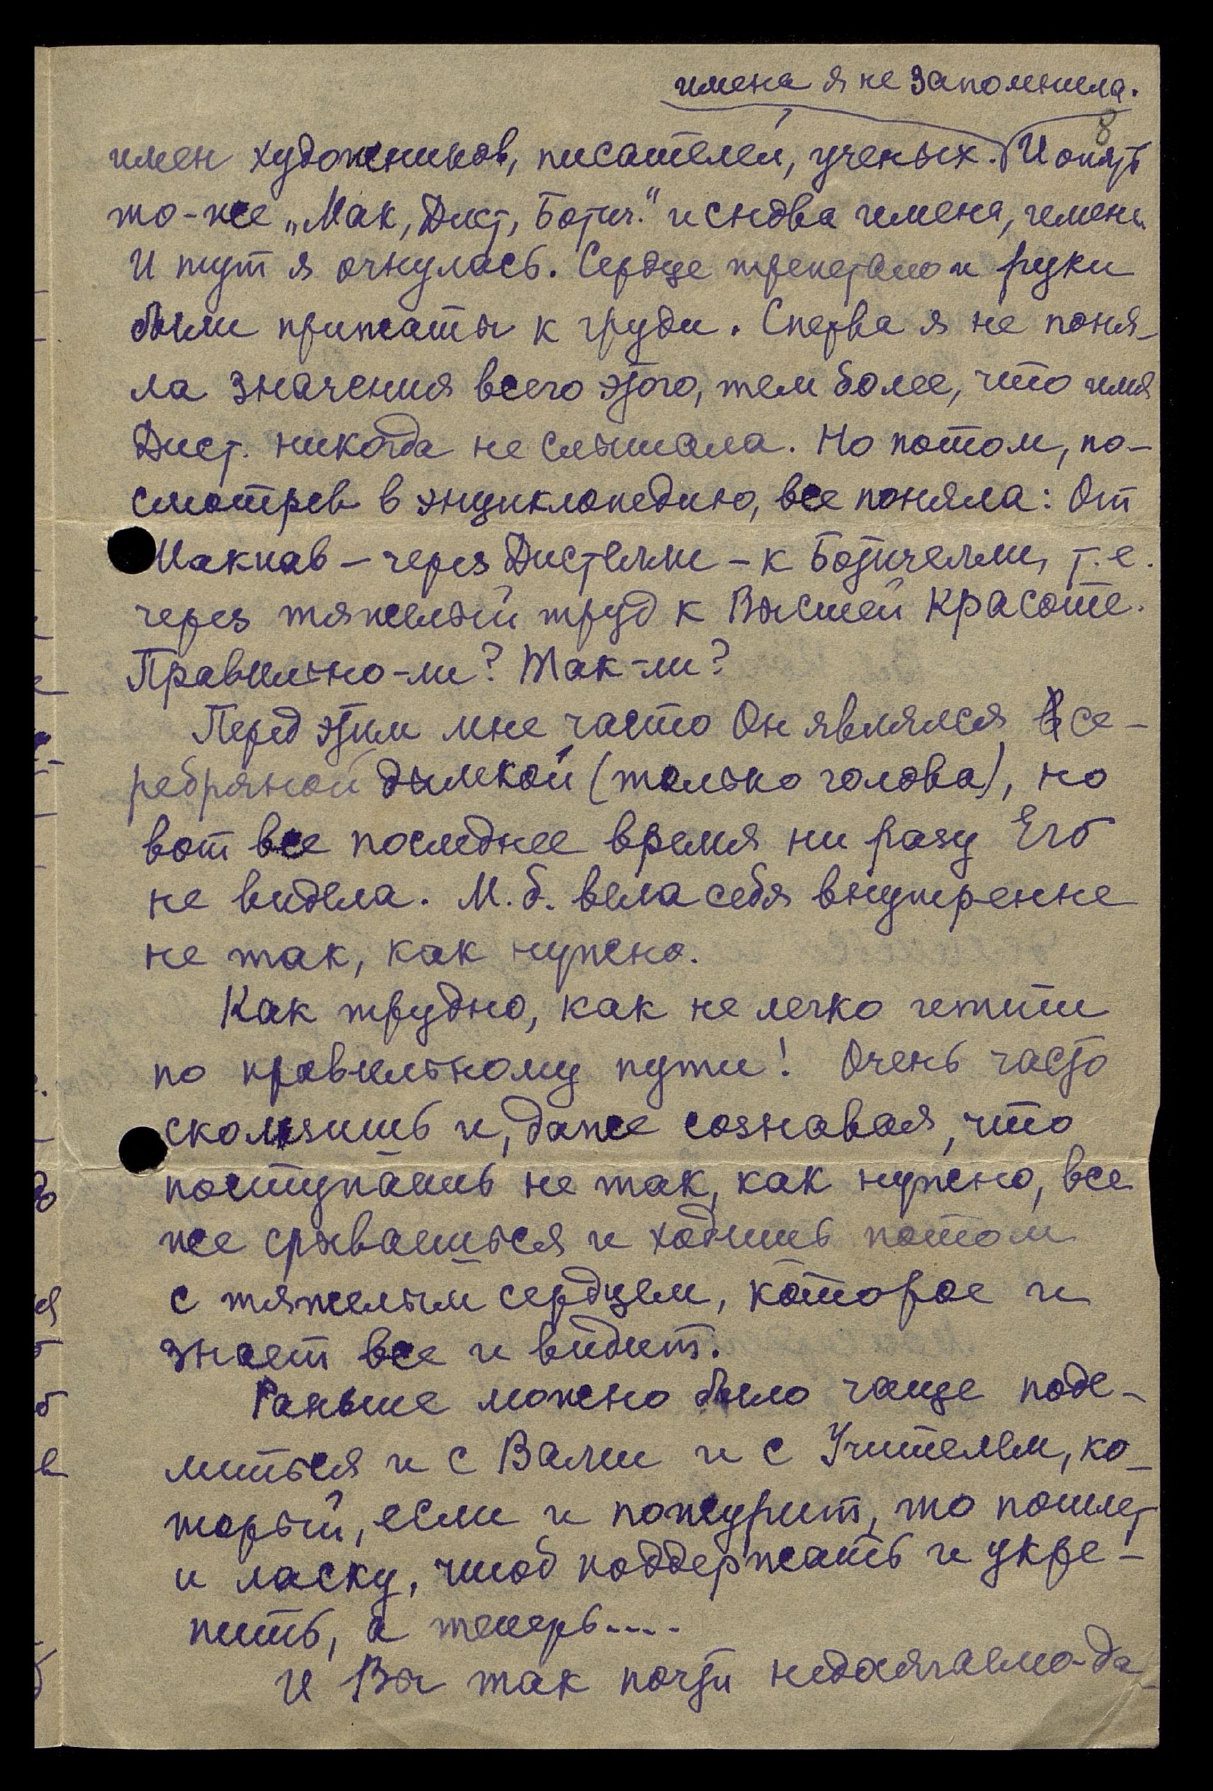 имена я не запомнила.
8
имен художников, писателей, ученых. И опять
то-же „Мак, Дист,Ботич." и снова имена, имена
И тут я очнулась. Сердце трепетало и руки
были прижаты к груди. Сперва я не поня-
ла значения всего этого, тем более, что имя
Дист. никогда не слышала. Но потом, по-
смотрев в энциклопедию, все поняла: От
Макнав – через Дистелли – к Ботичелли, т.е.
через тяжелый труд к Высшей Красоте.
Правильно-ли? Так-ли?
Перед этим мне часто Он являлся се-
ребряной дымкой (только голова), но
вот все последнее время ни разу Его
не видела. М.б. вела себя внутренне
не так, как нужно.
Как трудно, как не легко идти
по правильному пути! Очень часто
скользишь и, даже сознавая, что
поступаешь не так, как нужно, все
же срываешься и ходишь потом
с тяжелым сердцем, которое и
знает все и видит.
Раньше можно было чаще поде-
литься и с Вами и с Учителем, ко-
торый, если и пожурит, то пошлет
и ласку, чтоб поддержать и укре-
пить, а теперь....
И Вы так почти недосягаемо-да-